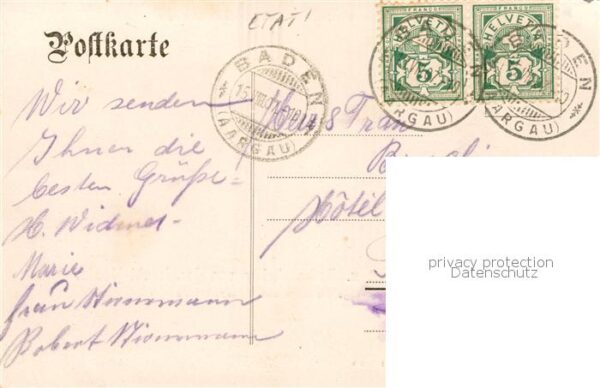 ETAT!
Postkarte
HELVETIA
FRANCO
5
HELVETIA
FRANCO
5
BADEN
15. VIII.07
(AARGAU)
BADEN
(AARGAU)
BADEN
(AARGAU)
Wir senden
Ihnen die
besten Grüße!
H. Widmer
Marie
Frau
Robert
Frau
Hôtel
privacy protection
Datenschutz